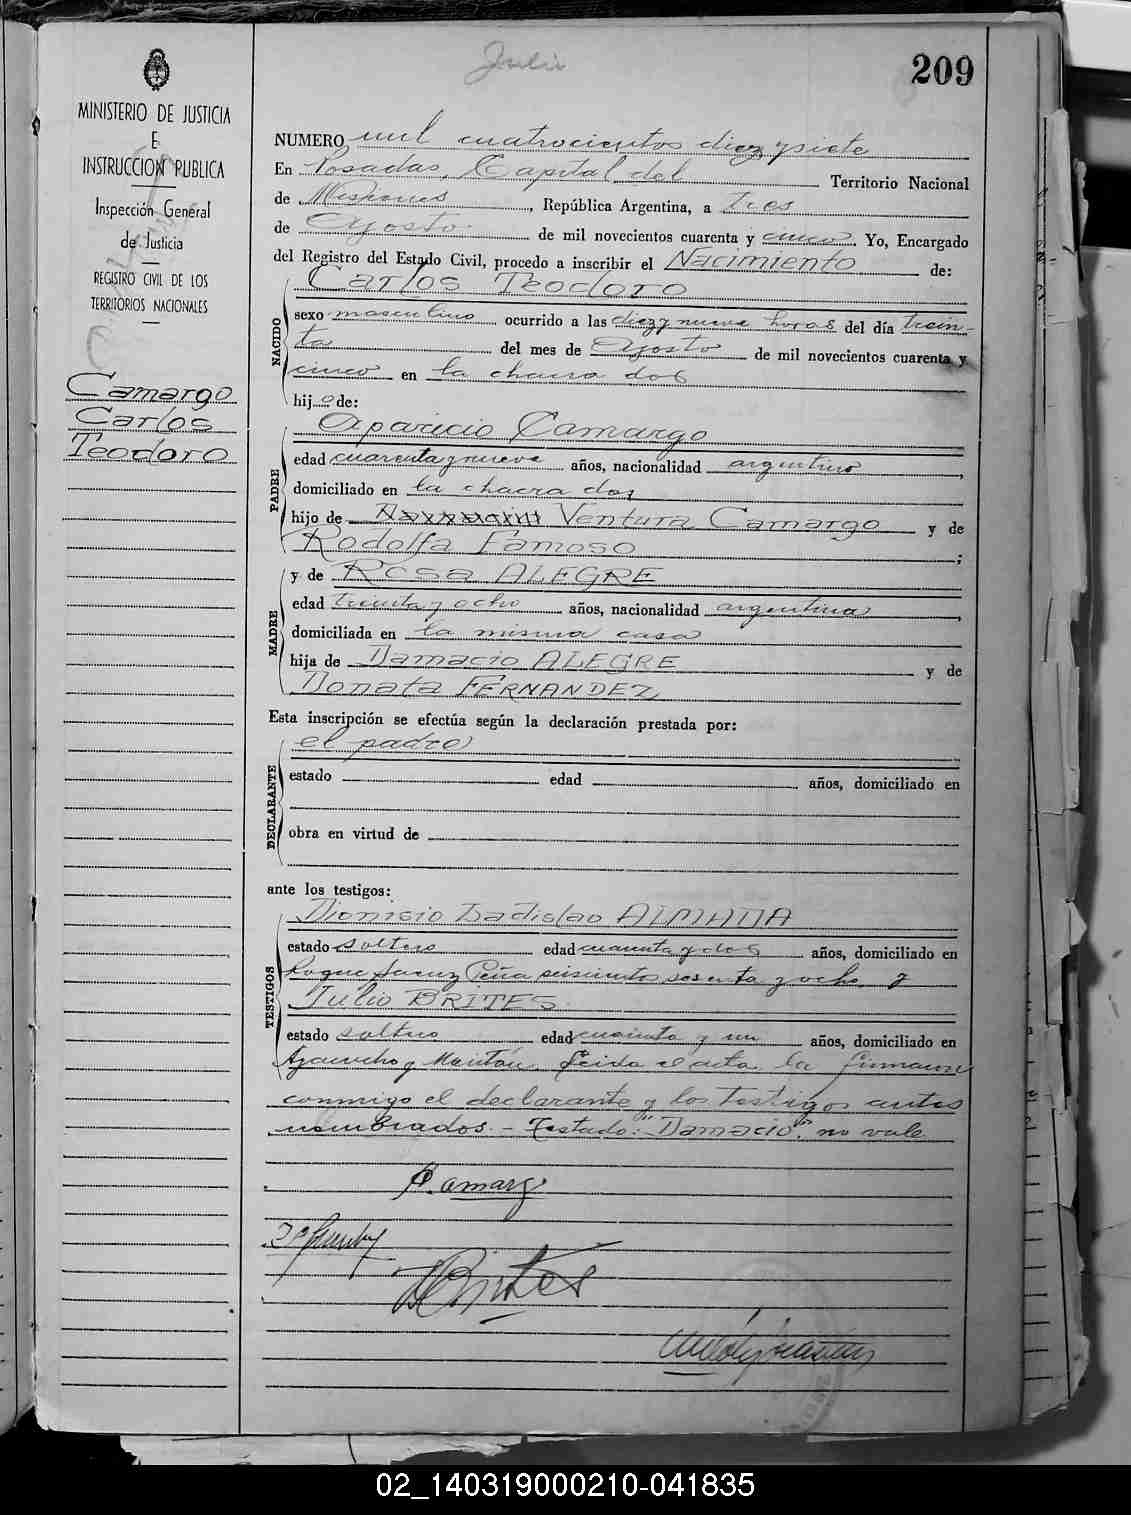 Julio
209
MINISTERIO DE JUSTICIA
E
INSTRUCCION PUBLICA
Inspección General
de Justicia
REGISTRO CIVIL DE LOS
TERRITORIOS NACIONALES
Camargo
Carlos
Teodoro
NUMERO mil cuatrocientos diez y siete
En Posadas, Capital del Territorio Nacional
de Misiones, República Argentina, a tres
de Agosto de mil novecientos cuarenta y cinco Yo, Encargado
del Registro del Estado Civil, procedo a inscribir el Nacimiento de:
NACIDO
Carlos Teodoro
sexo masculino ocurrido a las diez y nueve horas del día trein-
ta del mes de Agosto de mil novecientos cuarenta y
cinco en la chacra dos
hijo de:
PADRE
Aparicio Camargo
edad cuarenta y nueve años, nacionalidad argentino,
domiciliado en la chacra dos
hijo de Ventura Camargo y de
Rodolfa Famoso;
MADRE
y de Rosa ALEGRE
edad treinta y ocho años, nacionalidad argentina,
domiciliada en la misma casa
hija de Damacio ALEGRE y de
Donata FERNANDEZ
Esta inscripción se efectúa según la declaración prestada por:
DECLARANTE
el padre
estado edad años, domiciliado en
obra en virtud de
ante los testigos:
TESTIGOS
Dionisio Ladislao ALMADA
estado soltero edad cuarenta y dos años, domiciliado en
Roque Saenz Peña seiscientos sesenta y ocho y
Julio BRITES
estado soltero edad cuarenta y un años, domiciliado en
Ayacucho y Leida el acta la firmaron
conmigo el declarante y los testigos antes
nombrados. - Testado: "Damacio": no vale
A. Camargo
Brites
02_140319000210-041835